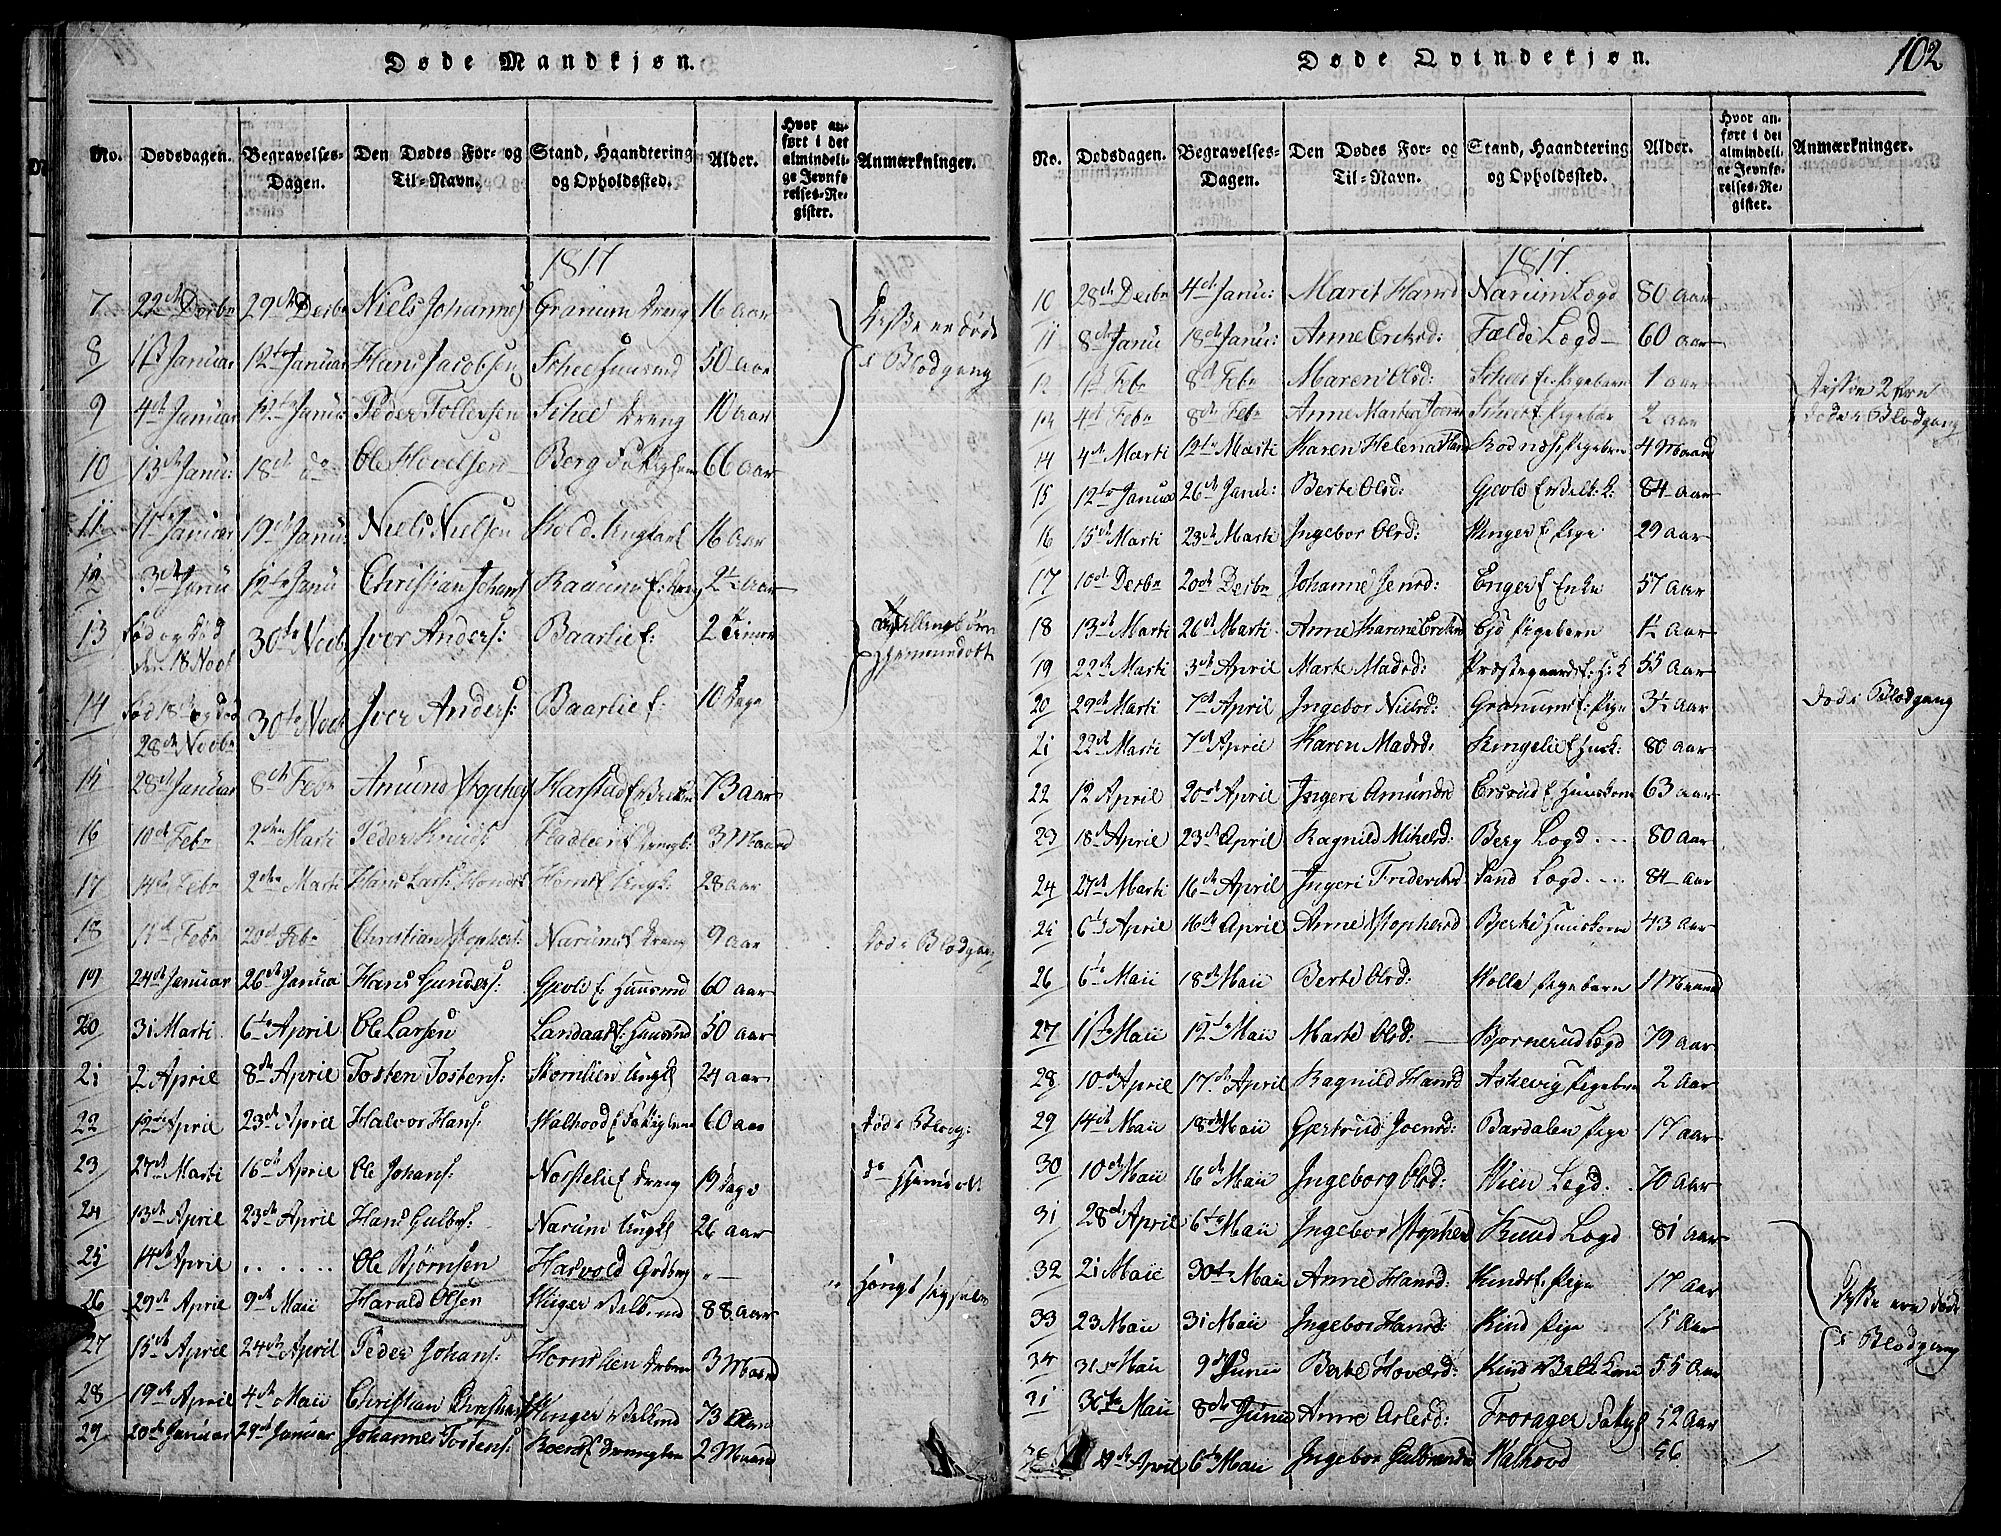 Døde Mandkjøn.
No. Dødsdagen. Begravelses-Dagen. Den Dødes For- og Til-Navn. Stand, Haandtering og Opholdssted. Alder. Hvor anført i det almindelige Jevnførelses-Register. Anmærkninger.
1817
7 22de Decbr 29de Decbr Niels Johannes Granum Dreng 16 Aar
8 1st Januar 12te Januar Hans Jacobsen Schee Huusmd 50 Aar
9 4de Januar 12te Janu: Peder Tollersen Schee Dreng 10 Aar
Diske ere døde i Blodgang
10 13de Janu: 18de do Ole Hovelsen Berg Fattiglem 66 Aar
11 11te Januar 19de Janu: Niels Nielsen Kold. Ungkarl 16 Aar
12 3de Janu 12te Janu Christian Johans Raaum E. Dreng 2½ Aar
13 Fød og Død den 18 Novb 30te Novb Iver Anders: Baarlie E: 2 Timer
14 Fød 18de og Død 28de Novbr 30te Novb Iver Anders: Baarlie E: 10 Dage
Tvillingbørn hjemmedøbt
15 28de Januar 8de Febr Amund Stophers Harstad E 73 Aar
16 10de Febr 2den Marti Peder Knuds: Fladlie E Drengb: 3 Maaned
17 14de Febr 2den Marti Hans Lars: Horne E Ungk: 28 Aar
18 11te Febr 20de Febr Christian Stophers: Narum E Dreng 9 Aar Død i Blodgang
19 24de Januar 26de Januar Hans Gunders: Gjevle E Huusmd 60 Aar
20 31 Marti 6te April Ole Larsen Landaas E: Huusmd 50 Aar
21 2 April 8de April Tosten Tostens: Skomlien Ungk 24 Aar
22 12te April 23de April Halvor Hans: Walhood E Fattiglem 60 Aar Død i Blodg:
23 27de Marti 16de April Ole Johans: Norstelie E Dreng 19 Dage do hjemdøbt
24 13de April 23de April Hans Gulbr: Narum Ungk 26 Aar
25 14de April . . . . . . Ole Bjørnsen Harvold Grdbrg " — Hengt sig selv
26 29de April 9de Maii Harald Olsen 88 Aar
27 15de April 24de April Peder Johans: Hornslien 3 Maaned
28 19de April 4de Maii Christian Christians Wenger 73 Aar
29 20de Januar 29de Januar Johannes Tostens: Boerud E Drengebarn 2 Maaned
102
Døde Qvindekjøn.
No. Dødsdagen. Begravelses-Dagen. Den Dødes For- og Til-Navn. Stand, Haandtering og Opholdssted. Alder. Hvor anført i det almindelige Jevnførelses-Register. Anmærkninger.
1817.
10 28de Decbr 4de Janu: Marit Hansd Narum Lægd 80 Aar
11 8de Janu 18de Janu: Anne Ericsd: Falde Lægd 60 Aar
12 1st Feb 8de Febr Maren Olsd: Schee E. Pigebarn 1 Aar
13 4de Febr 8de Febr Anne Marthe Schee E Pigebarn 2 Aar
Diske 2 ere Døde i Blodgang
14 4de Marti 12te Marti Karen Helena Hans Rodnæs, Pigebarn 4 Maaned
15 12te Janua 26de Janu: Berte Olsd: Gjevle E 84 Aar
16 15de Marti 23de Marti Ingebor Olsd: Wenger E Pige 29 Aar
17 10de Decbr 20de Decbr Johanne Jensd: Enger E Enke 57 Aar
18 13de Marti 26de Marti Anne Karine Ericksd Eid Pigebarn 1½ Aar
19 22de Marti 3de April Marte Madsd: Præstegaards E: H: K 55 Aar
20 29de Marti 7de April Ingebor Nielsd: Granum E: Pige 3½ Aar Død i Blodgang
21 22de Marti 7de April Karen Madsd: Kengelie E Husk: 80 Aar
22 12 April 20de April Ingeri Amundsd Ersrud E Huuskone 63 Aar
23 18de April 23de April Ragnild Mikelsd: Berg Lægd 80 Aar
24 27de Marti 16de April Ingeri Fredericksd Sand Lægd 84 Aar
25 6te April 16de April Anne Stophersd Bjerke Huuskone 43 Aar
26 6te Maii 18de Maii Berte Olsd: Wolla Pigebarn 1 Maaned
27 1ste Maii 12te Maii Marte Olsd: Bjornerud Lægd 79 Aar
28 10de April 17de April Ragnild Hansd Askevig Pigebarn 2 Aar
29 14de Maii 18de Maii Gjertrud Joensd: Bardalen Pige 17 Aar
30 10de Maii 16de Maii Ingeborg Olsd: Wien Lægd. 70 Aar
31 28de April 6te Maii Ingebor Stophersd Kind Lægd 81 Aar
32 21 Maii 30te Maii Anne Hansd: Kinds E. Pige 17 Aar
33 23 Maii 31 Maii Ingebor Hansd: Kind Pige 15 Aar
34 31 Maii 9de Junii Berte Hovelsd: Kind 55 Aar
Diske ere døde i Blodgang
35 30te Maii 8de Junii Anne Arlesd: Frorager 52 Aar
36 29de April 6te Maii Ingebor Gulbrandsd Walhood 56